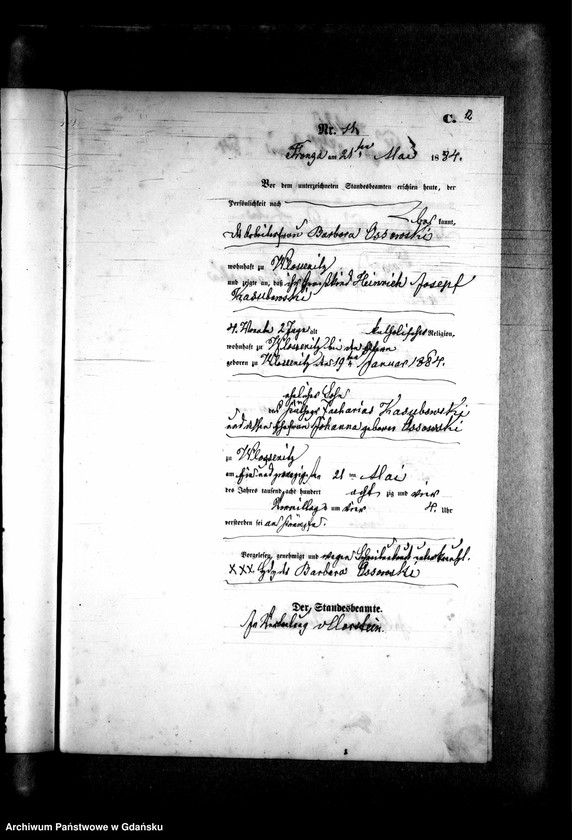 C. 2
Nr.
Fronza am 21 ten Mai 1884.
Vor dem unterzeichneten Standesbeamten erschien heute, der
Persönlichkeit nach
be kannt,
die Arbeiterfrau Barbara Ossowski
wohnhaft zu
und zeigte an, daß Heinrich Joseph
Kasubowski
4 Monate 2 Tage alt katholischer Religion,
wohnhaft zu bei den Eltern
geboren zu den 19 ten Januar 1884.
ehelicher Sohn
des Zacharias Kasubowski
und dessen Ehefrau Johanna geboren Ossowski
zu
am ein und zwanzigsten 21 ten Mai
des Jahres tausend acht hundert acht zig und vier
Vormittags um vier 4. Uhr
verstorben sei an Krämpfe.
Vorgelesen, genehmigt und wegen Schreibensunkunde unterkreuzt.
XXX Hdz der Barbara Ossowski
Der Standesbeamte.
In Vertretung
Archiwum Państwowe w Gdańsku